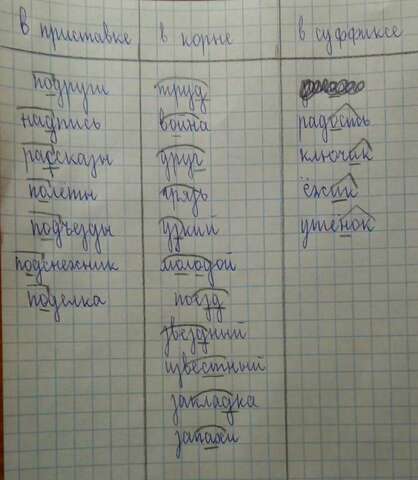 в приставке
подруги
надпись
рассказы
полеты
подъезды
подснежник
поделка
в корне
труд
друг
грязь
узкий
молодой
поезд
звездный
известный
закладка
запахи
в суффиксе
радость
ключик
ёжик
утенок